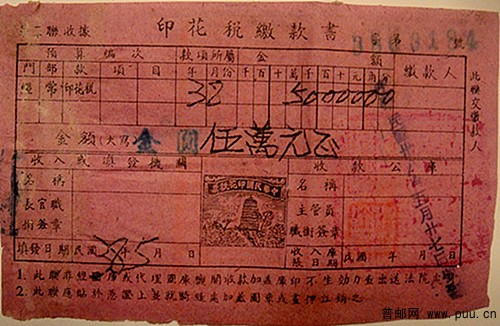 印花稅繳款書
第二聯收據
第 號
預算編次 款項所屬 金額 繳款人
門 部 款 項 目 年 月份 千 百 十 萬 千 百 十 元 角 分
經 常 印花稅 38 5000000
此聯交繳款人
金額(大寫) 金圓 伍萬元正
收入或填發機關 收款公庫
名稱 名稱
長官職銜簽章 主管員職銜簽章
中華民國印花稅票
填發日期 民國 38年 5月 日 收入庫賬日期 民國 年 月 日
1. 此聯非經 或代理國庫機關收款加蓋庫印不生效力
2. 此聯應貼於憑證上並就騎縫處加蓋圖章或畫押註銷之
五月十七日
普邮网 www.puu.cn